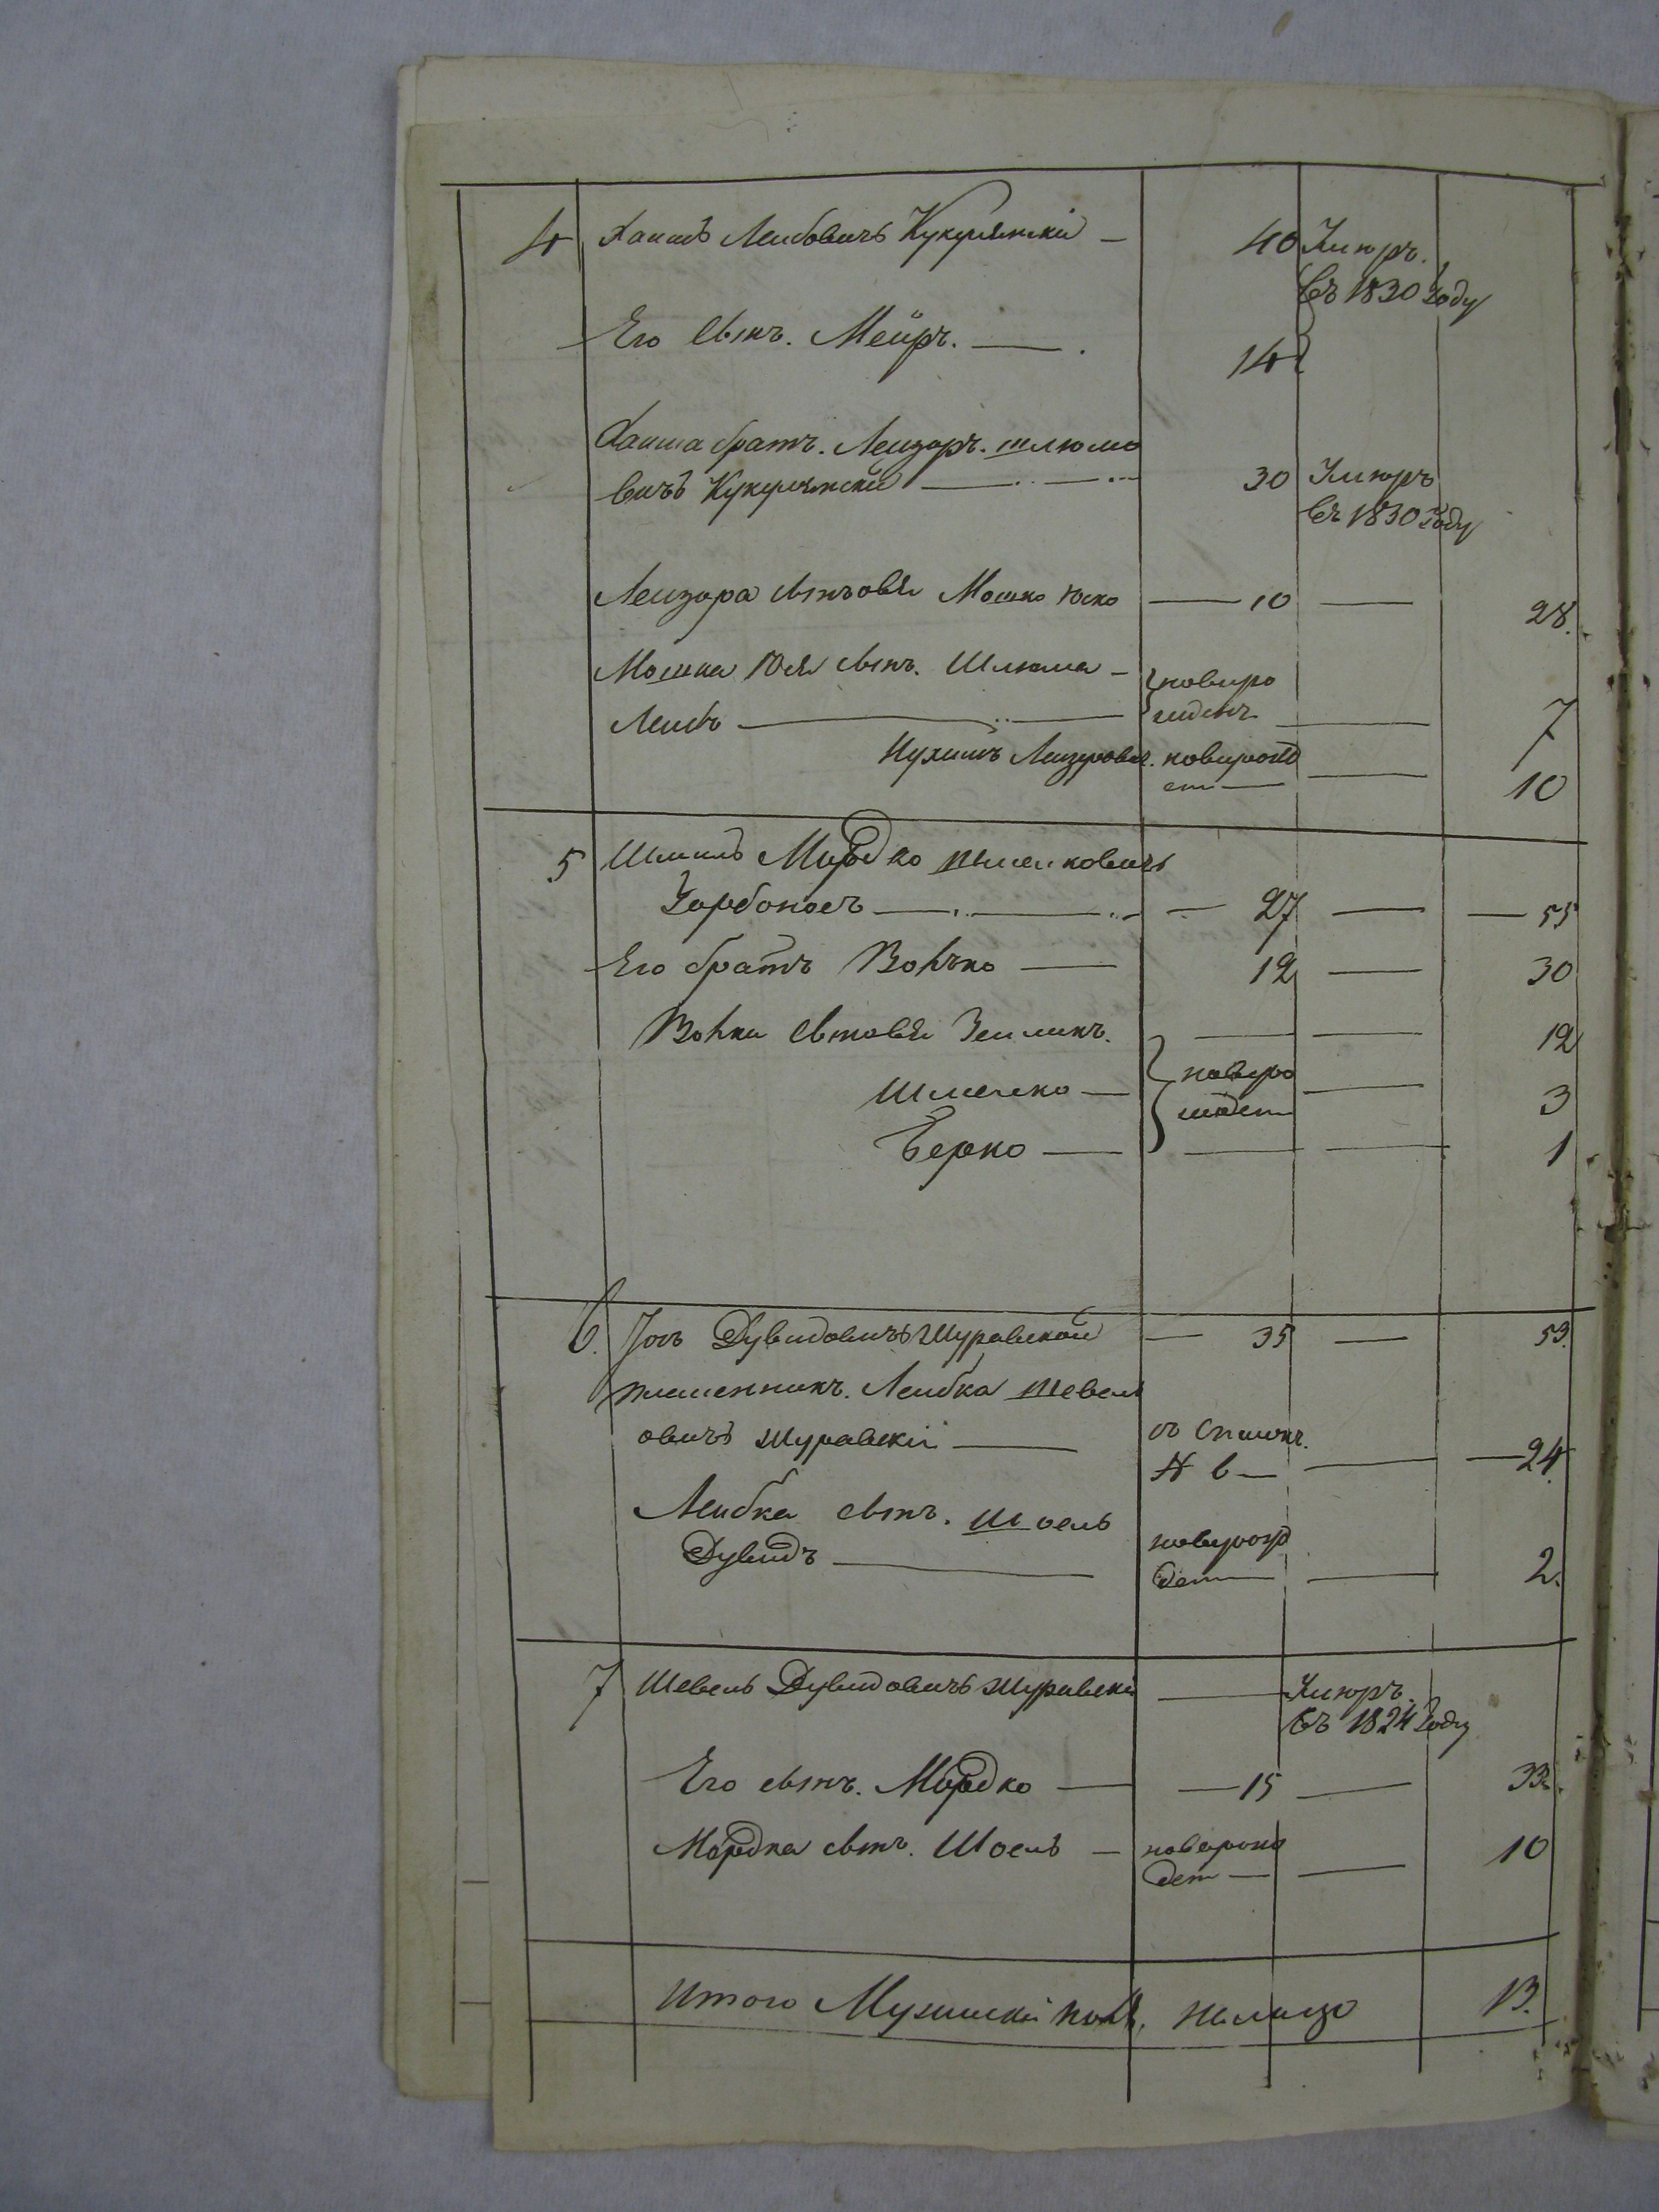 4 Хаимъ Лейбовичъ Кукулянскій — 40 Умеръ.
въ 1830 году
Его сынъ. Мейръ. — 14
Хаима братъ. Лейзоръ. Шлюмо
вичъ Кукулянскій — 30 Умеръ
въ 1830 году
Лейзора сыновья Мошко Юско — 10 — 28.
Мошка 1ой сынъ. Шлюма — новоро
Лейбъ — жденъ — 7
Нухимъ Лейзеровъ. новорожд
ен — 10
5 Шмуль Мордко
Зорбоносъ — 27 — 55
Его братъ Волько — 12 — 30
Волки сыновья Зелманъ. — — 12
Шмелко — новоро — 3
жден
Берко — — — 1
6. Іось Дувидовичъ Журавской — 35 — 53.
племенникъ. Лейбка Шевел
овичъ Журавскій — въ
N 6 — — 24.
Лейбка сынъ. Шоель
Дувидъ — новорож
ден — — 2.
7 Шевель Дувидовичъ Журавскі — Умеръ.
въ 1824 году
Его сынъ. Мордко — 15 — 33.
Мордка сынъ. Шоель — новорож
ден — — 10
Итого Мужеска пола, налицо 13.